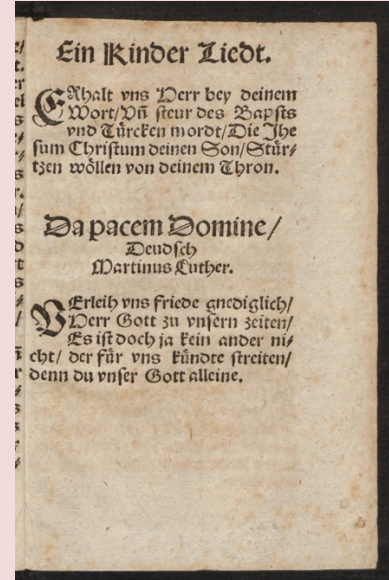 Ein Kinder Liedt.
ERhalt vns Herr bey deinem
Wort/Vñ steur des Bapsts
vnd Türcken mordt/Die Jhe
sum Christum deinen Son/Stür-
tzen wöllen von deinem Thron.
Da pacem Domine/
Deudsch
Martinus Luther.
VErleih vns friede gnediglich/
Herr Gott zu vnsern zeiten/
Es ist doch ja kein ander ni-
cht/ der für vns kündte streiten/
denn du vnser Gott alleine.